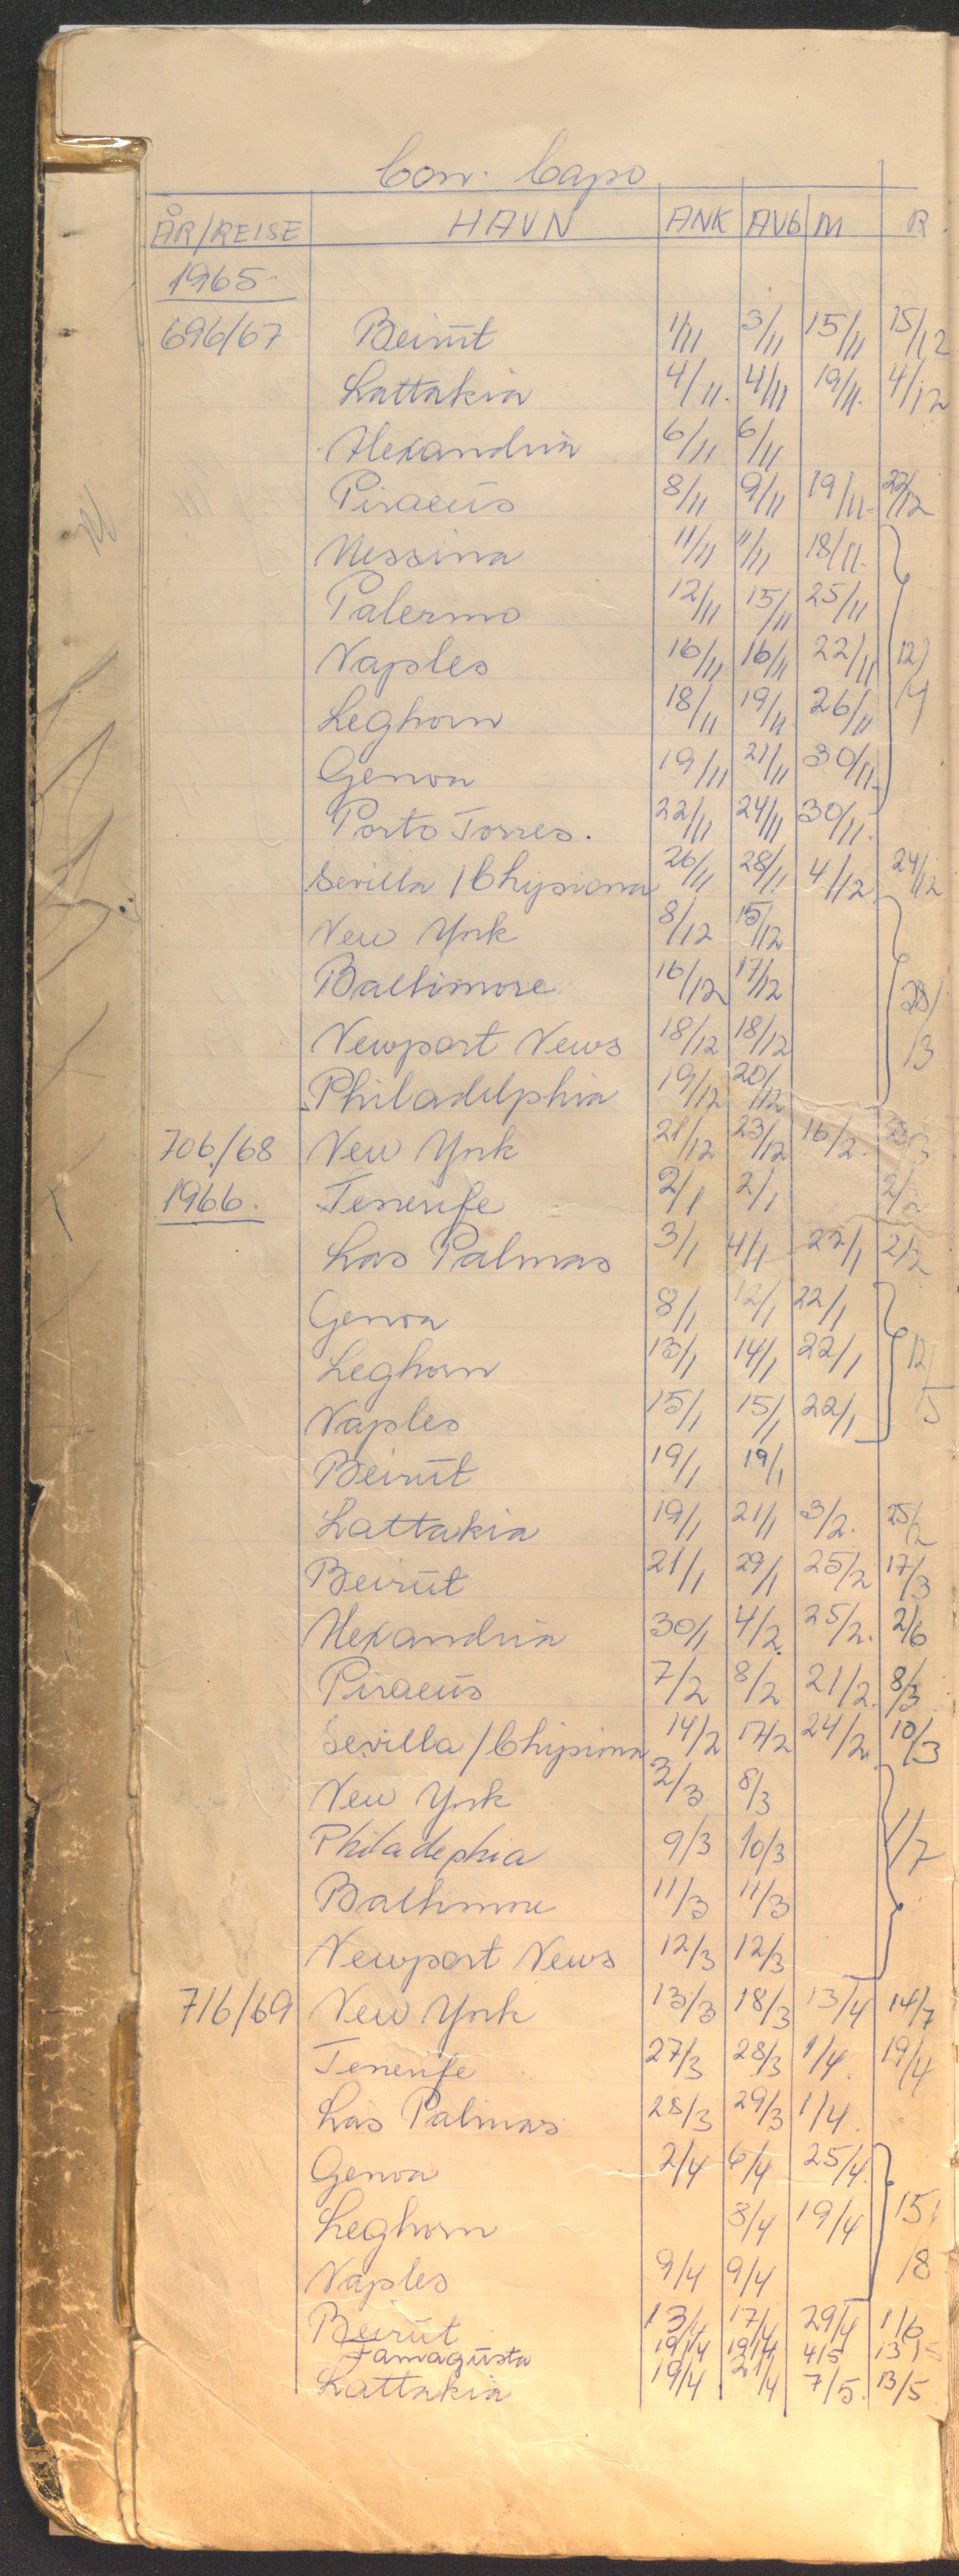 Con. Capo
ÅR/REISE HAVN ANK AVG M R.
1965
696/67 Beirut 1/11 3/11 15/11 15/12
Lattakia 4/11. 4/11 19/11. 4/12
Alexandria 6/11 6/11
Piraeus 8/11 9/11 19/11. 22/12
Messina 11/11 11/11 18/11.
Palermo 12/11 15/11 25/11
Naples 16/11 16/11 22/11 12/4
Leghorn 18/11 19/11 26/11
Genoa 19/11 21/11 30/11.
Porto Torres. 22/11 24/11 30/11.
Sevilla / Chipiona 26/11 28/11 4/12. 24/12
New York 8/12 15/12
Baltimore 16/12 17/12 28/3
Newport News 18/12 18/12
Philadelphia 19/12 20/12
706/68 New York 21/12 23/12 16/2.
1966. Tenerife 2/1 2/1
Las Palmas 3/1 4/1 22/1 2/2
Genoa 8/1 12/1 22/1
Leghorn 13/1 14/1 22/1 12/5
Naples 15/1 15/1 22/1
Beirut 19/1 19/1
Lattakia 19/1 21/1 3/2. 25/2
Beirut 21/1 29/1 25/2 17/3
Alexandria 30/1 4/2. 25/2. 2/6
Piraeus 7/2 8/2 21/2. 8/3
Sevilla / Chipiona 14/2 17/2 24/2. 10/3
New York 2/3 8/3
Philadephia 9/3 10/3 1/7
Baltimore 11/3 11/3
Newport News 12/3 12/3
716/69 New York 13/3 18/3 13/4 14/7
Tenerife 27/3 28/3 1/4. 19/4
Las Palmas 28/3 29/3 1/4.
Genoa 2/4 6/4 25/4.
Leghorn 8/4 19/4 15/8
Naples 9/4 9/4
Beirut 13/4 17/4 29/4 1/6
Famagusta 19/4 19/4 4/5 13/5
Lattakia 19/4 21/4 7/5. 13/5